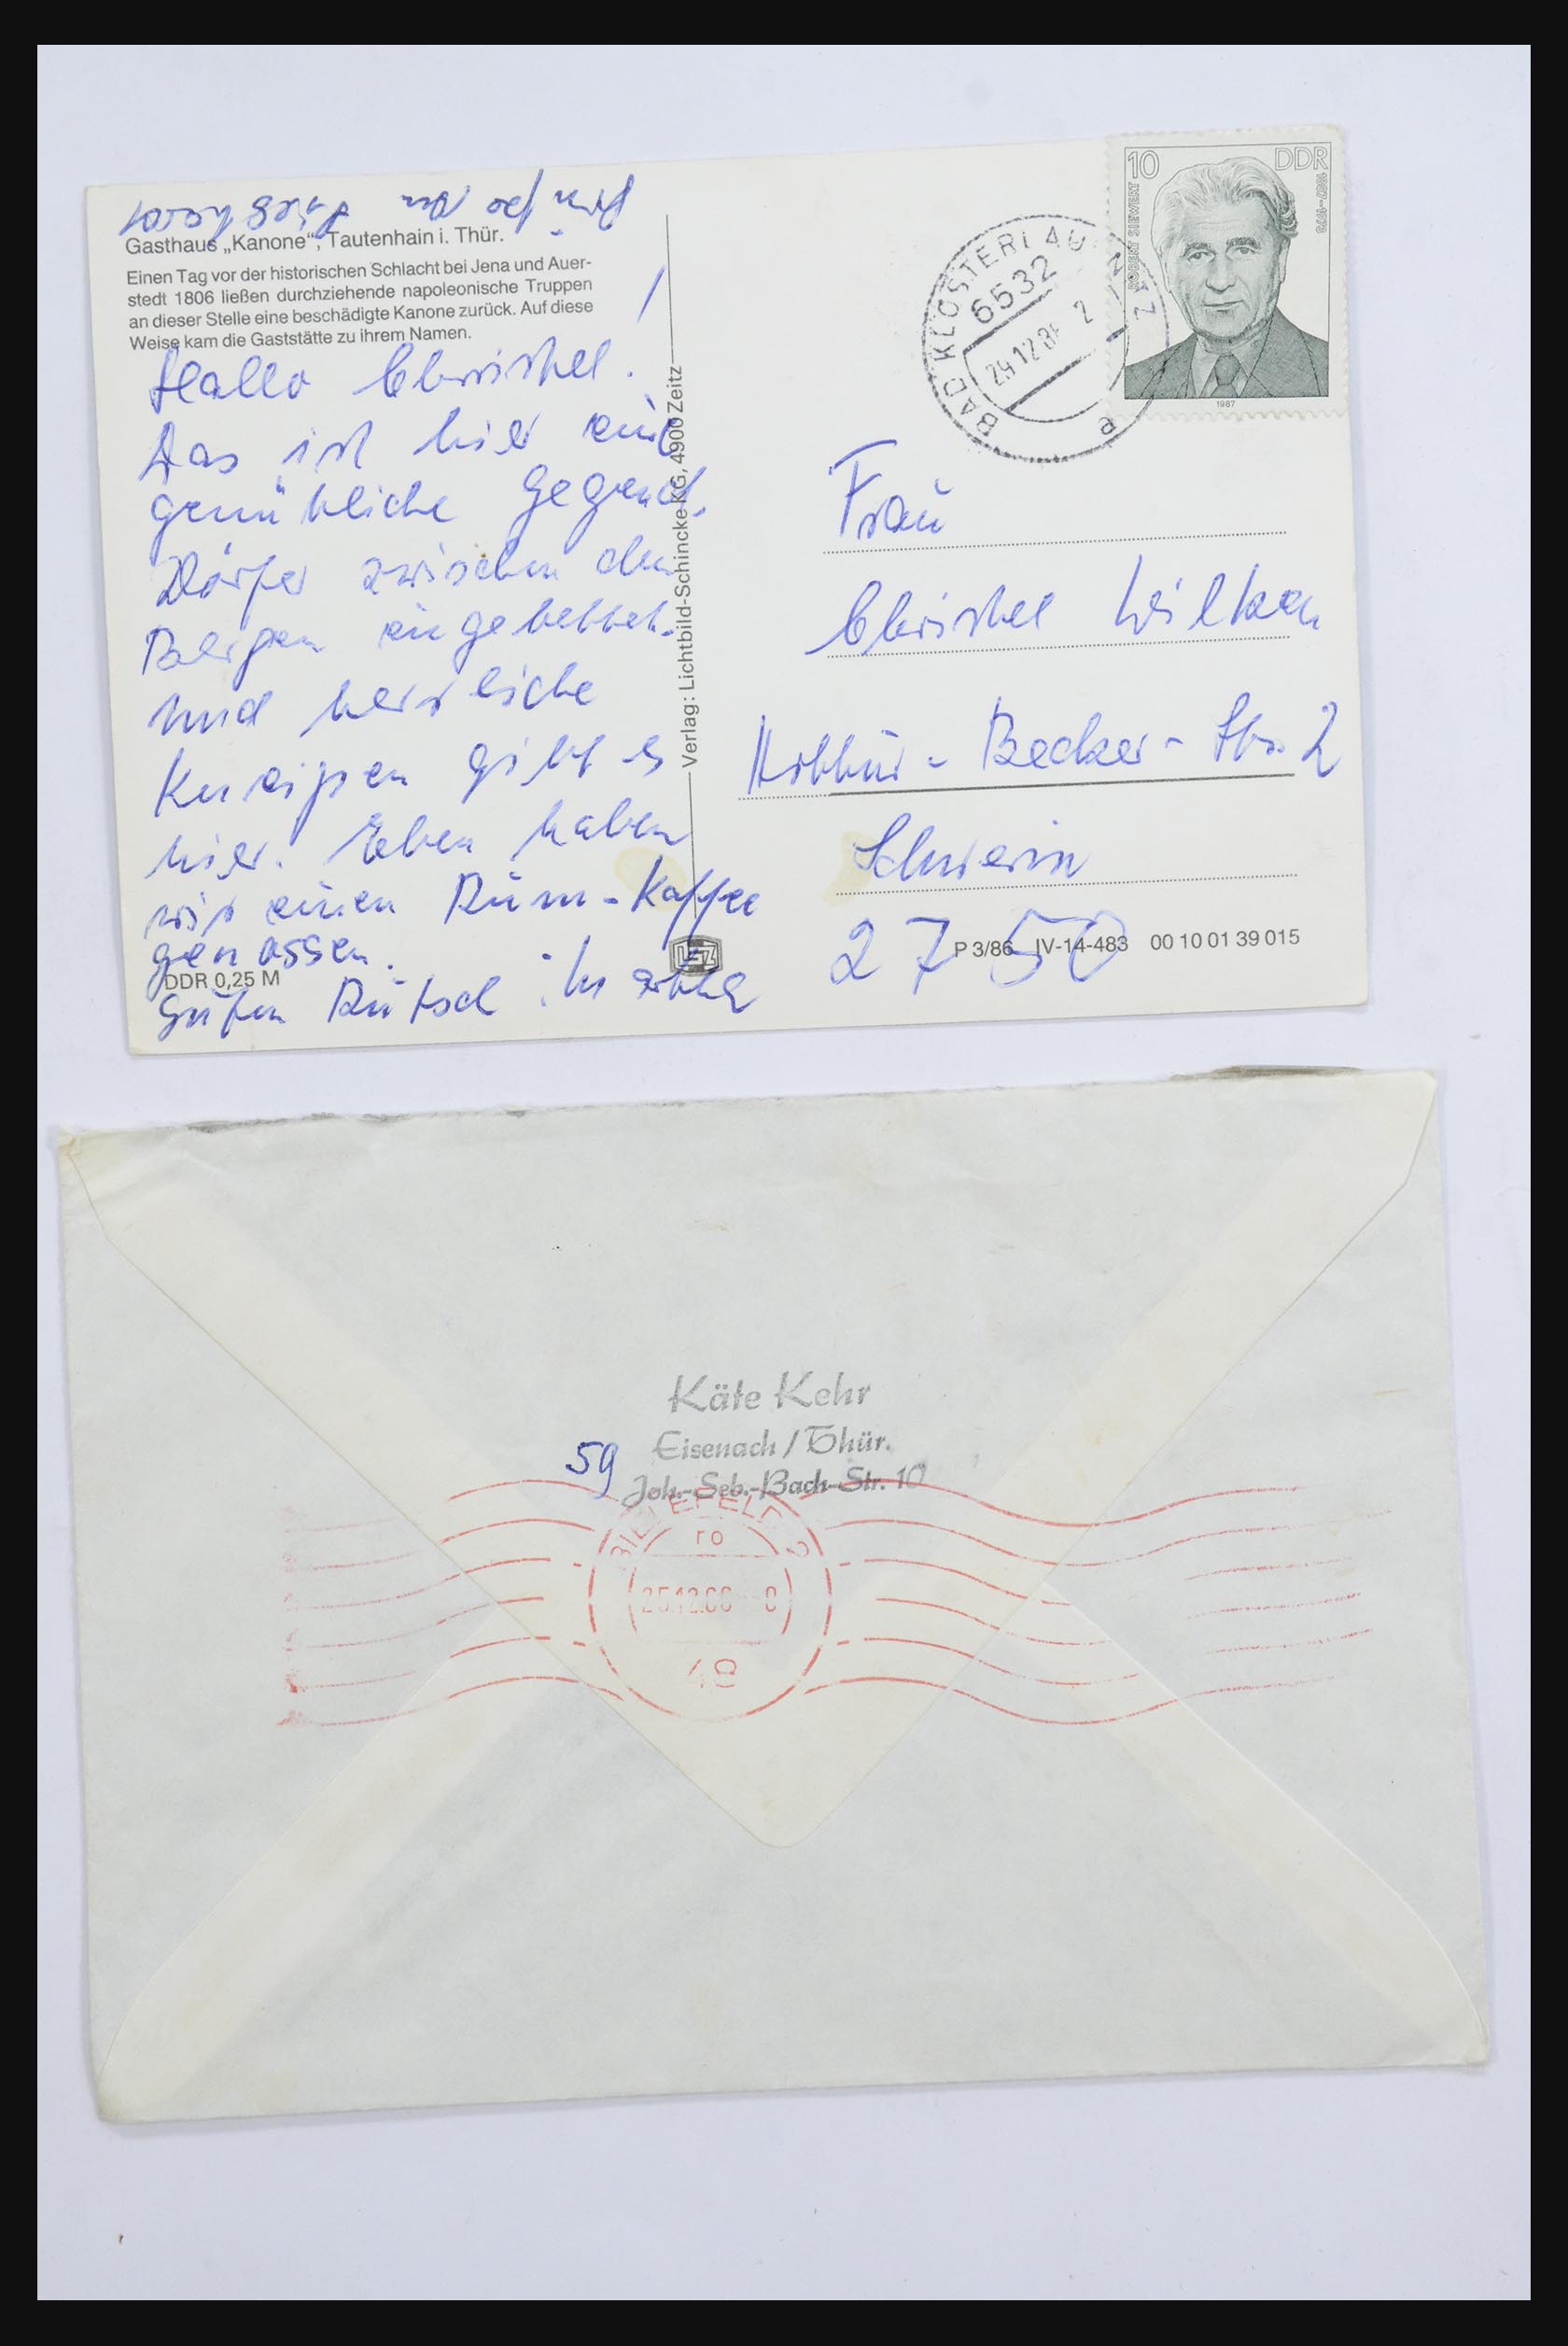 Gasthaus „Kanone“, Tautenhain i. Thür.
Einen Tag vor der historischen Schlacht bei Jena und Auer-
stedt 1806 ließen durchziehende napoleonische Truppen
an dieser Stelle eine beschädigte Kanone zurück. Auf diese
Weise kam die Gaststätte zu ihrem Namen.
Hallo Christel!
Das ist hier eine
gemütliche Gegend.
Dörfer zwischen den
Bergen eingebettet.
Und herrliche
Kneipen gibt es
hier. Eben haben
wir einen Rum-Kaffee
genossen.
Guten Rutsch
DDR 0,25 M
Verlag: Lichtbild-Schincke KG, 4900 Zeitz
BAD KLOSTERLAUSNITZ
6532
29.12.8
2
e
10 DDR
ROBERT SIEWERT
1887-1973
1987
Frau
Christel Wilken
Arthur-Becker-Str. 2
Schwerin
2750
P 3/86 IV-14-483 00 10 01 39 015
Käte Kehr
59 Eisenach/Thür.
Joh.-Seb.-Bach-Str. 10
BIELEFELD 2
ro
25.12.66